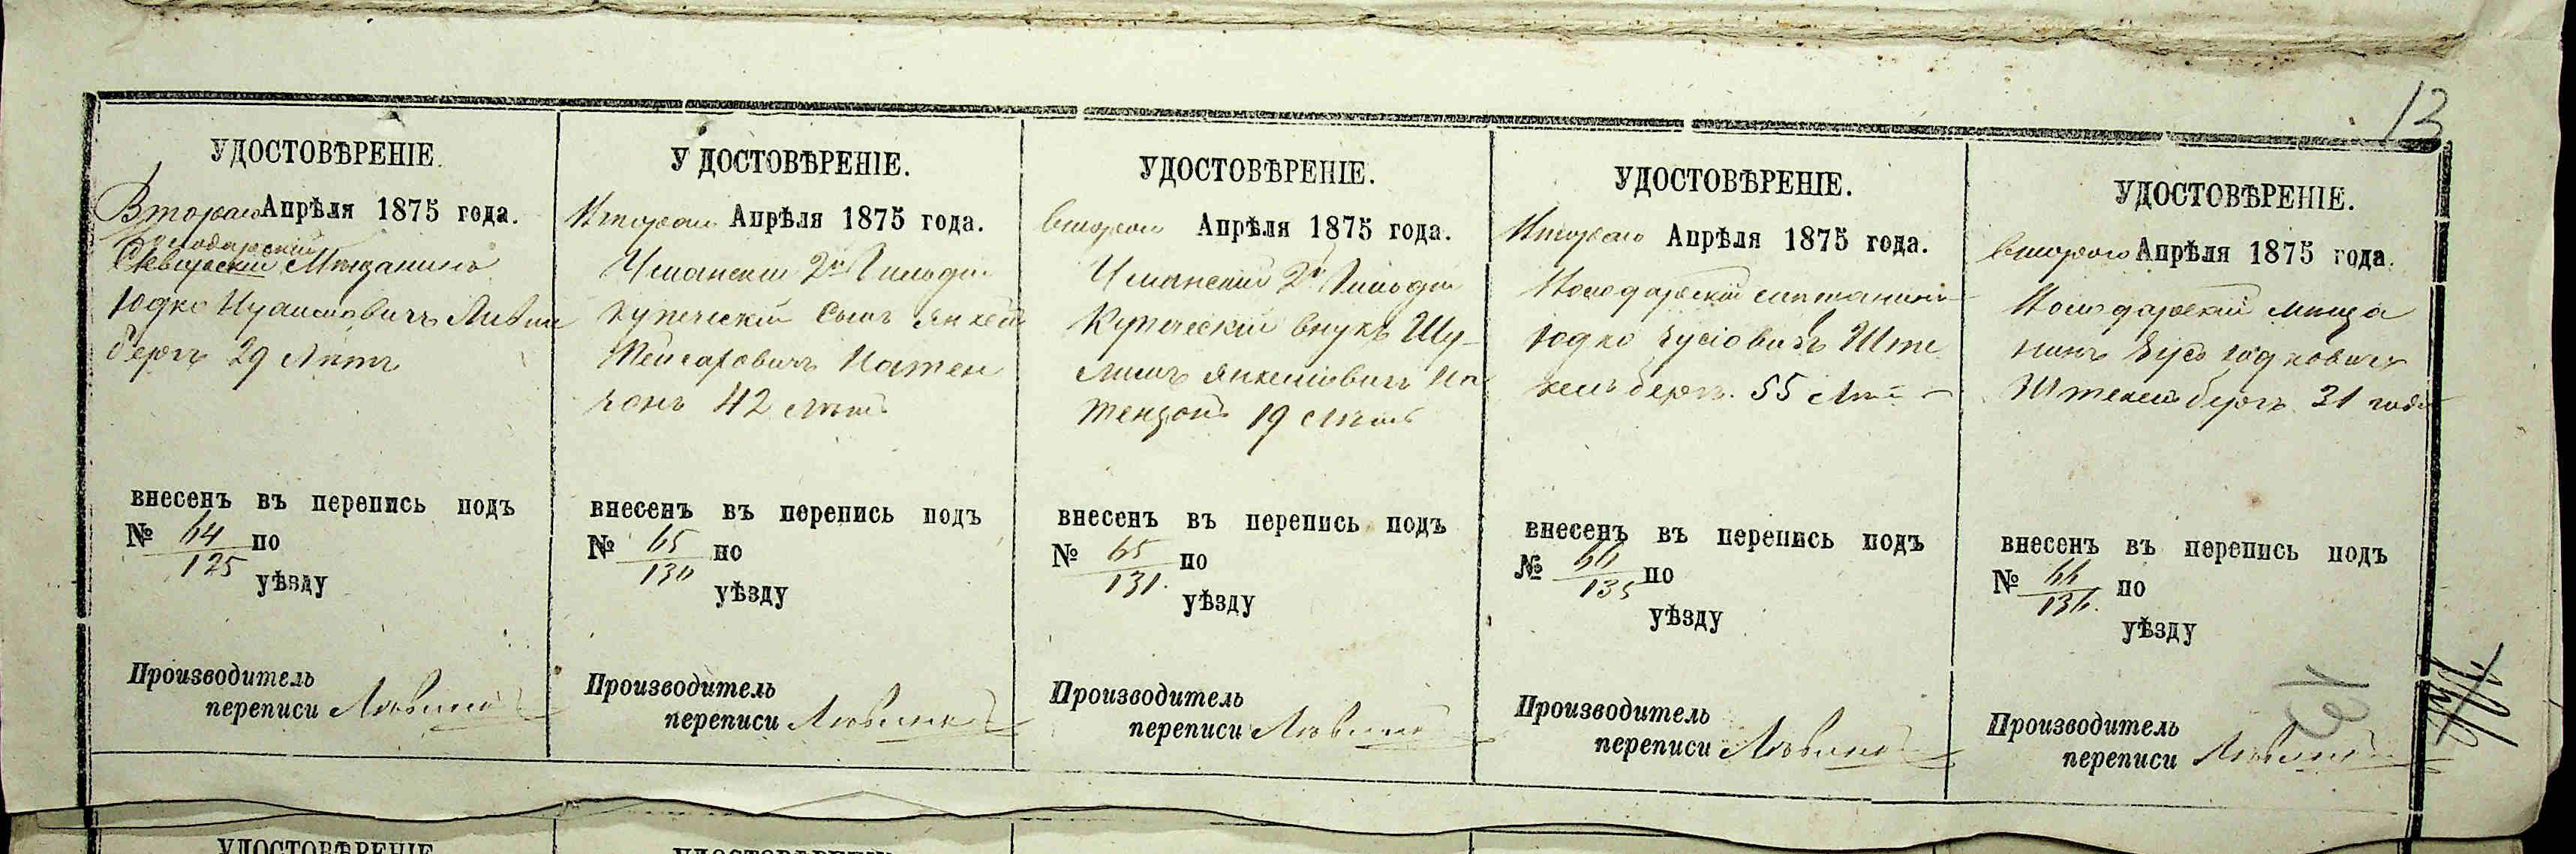 13
УДОСТОВѢРЕНІЕ.
Втораго Апрѣля 1875 года.
Володарскій
Сквирскій Мѣщанинъ
Юдко
бергъ 29 лѣтъ
внесенъ въ перепись подъ
№ 64/125 по
уѣзду
Производитель
переписи
УДОСТОВѢРЕНІЕ.
Втораго Апрѣля 1875 года.
Уманскій 2й Гильдіи
купеческій сынъ Янкель
Мейеровичъ Натен
зонъ 42 лѣтъ
внесенъ въ перепись подъ
№ 65/130 по
уѣзду
Производитель
переписи
УДОСТОВѢРЕНІЕ.
Втораго Апрѣля 1875 года.
Уманскій 2й Гильдіи
Купеческій внукъ Шу-
лимъ Янкелевичъ На
тензонъ 19 лѣтъ
внесенъ въ перепись подъ
№ 65/131. по
уѣзду
Производитель
переписи
УДОСТОВѢРЕНІЕ.
Втораго Апрѣля 1875 года.
Володарскій мѣщанинъ
Юдко Зусіовичъ Ште
кельбергъ. 55 лѣтъ
внесенъ въ перепись подъ
№ 66/135 по
уѣзду
Производитель
переписи
УДОСТОВѢРЕНІЕ.
Втораго Апрѣля 1875 года.
Володарскій мѣща
нинъ Зусь Юдковичъ
Штекельбергъ 31 года
внесенъ въ перепись подъ
№ 66/136. по
уѣзду
Производитель
переписи
УДОСТОВѢРЕНІЕ